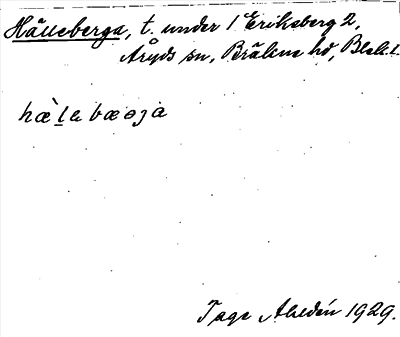 Hälleberga, t. under 1 Eriksberg 2,
Åryds sn, Bräkne hd, Blek. l.
hæ̀l̠a bæɵja
Tage Ahldén 1929.